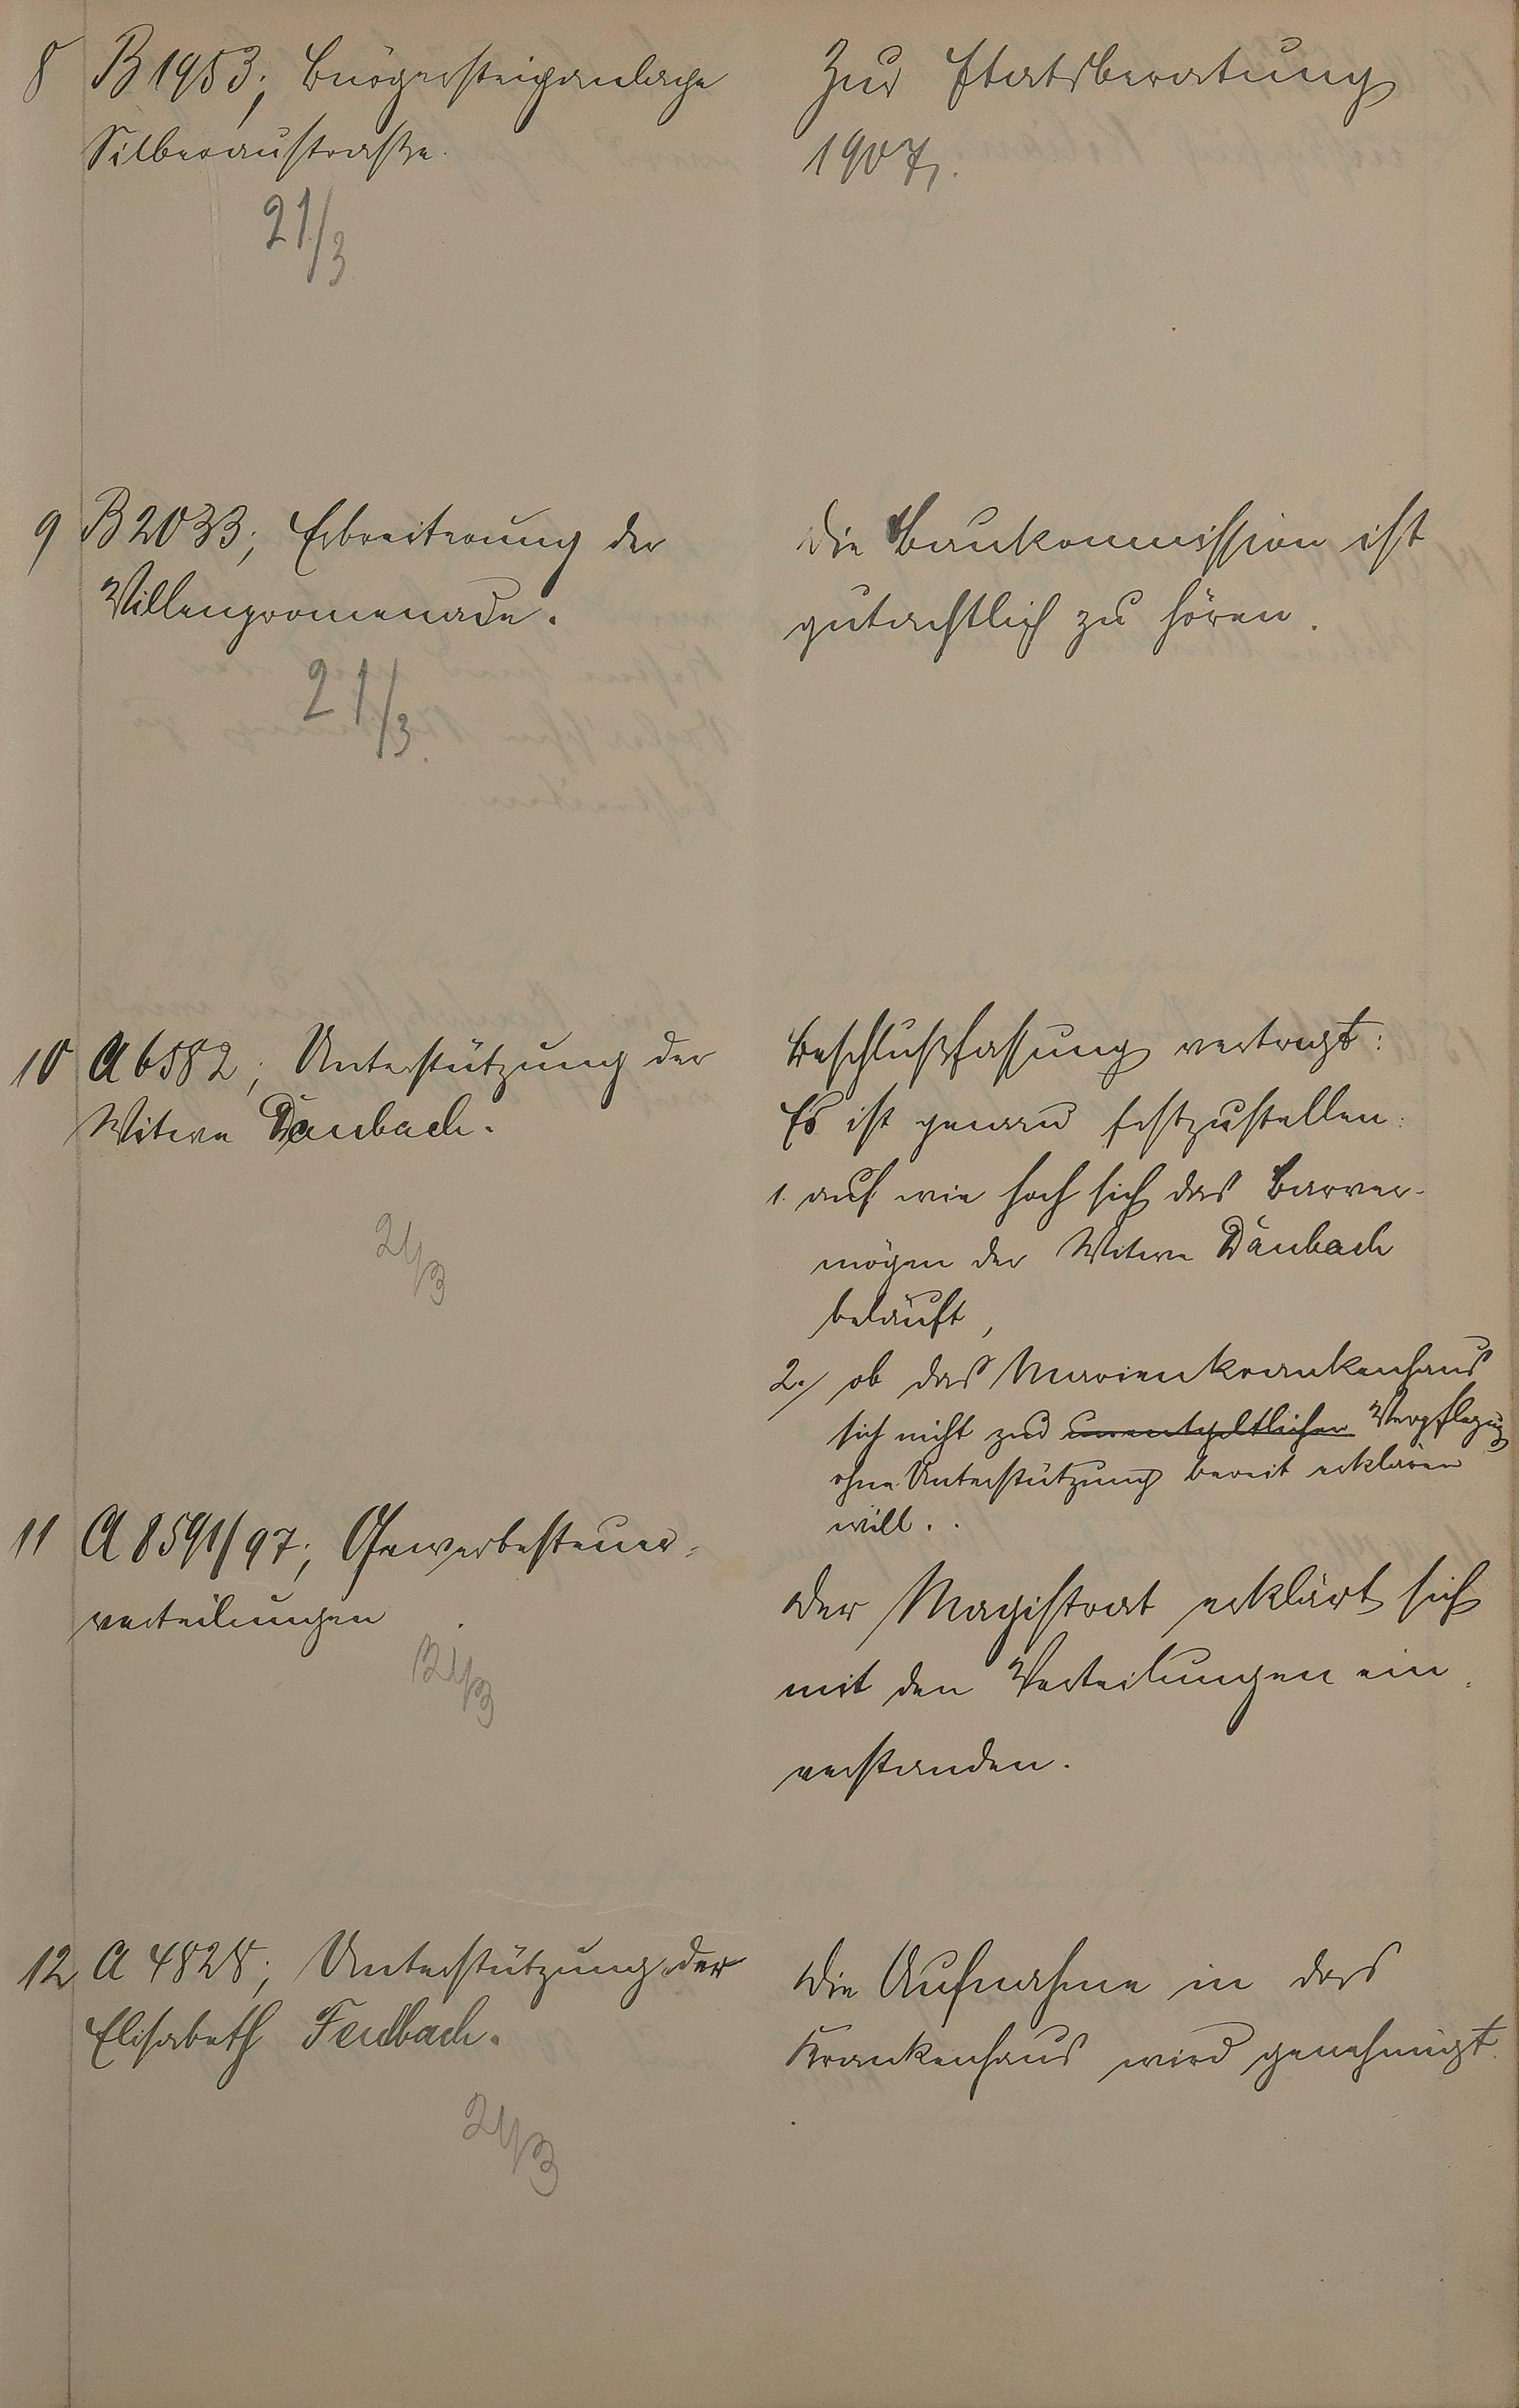 8 B 1953; Bürgersteiganlage
Silberaustraße.
21/3
Zur Etatsberatung
1907.
9 B 2033; Erbreiterung der
Villenpromenade.
21/3.
Die Baukommission ist
gutachtlich zu hören.
10 A 6582; Unterstützung der
Witwe Daubach.
21/3
Beschlußfassung vertagt:
Es ist genau festzustellen:
1. auf wie hoch sich das Barver-
mögen der Witwe Daubach
beläuft,
2./ ob das Marienkrankenhaus
sich nicht zur unentgeltlichen Verpflegung
ohne Unterstützung bereit erklären
will.
11 A 8591/97; Gewerbesteuer-
verteilungen
21/3
Der Magistrat erklärt sich
mit den Verteilungen ein-
verstanden.
12 A 4828; Unterstützung der
Elisabeth Feilbach.
21/3
Die Aufnahme in das
Krankenhaus wird genehmigt.